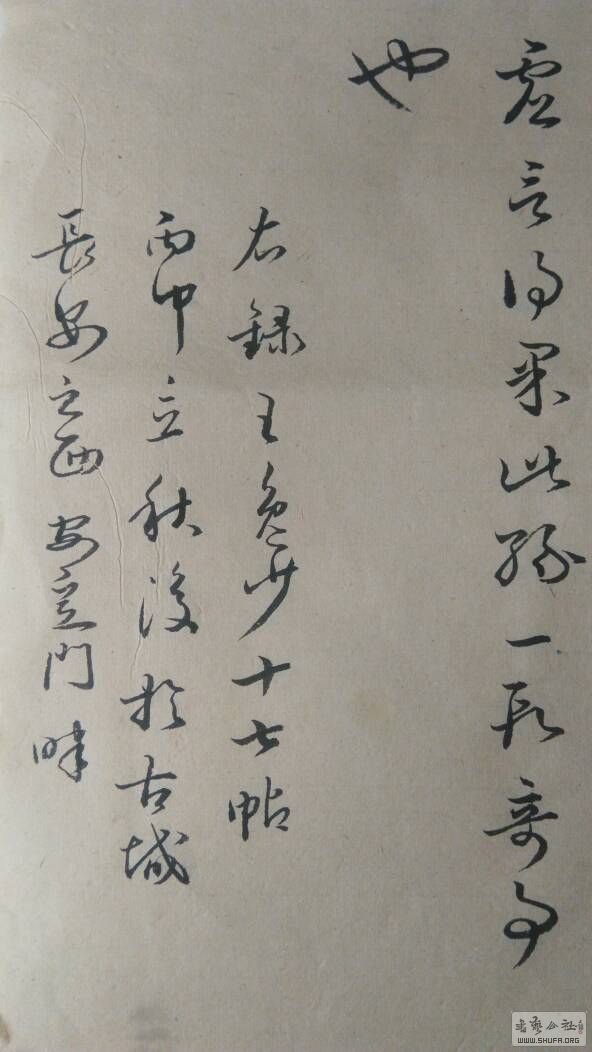 虚言得果此缘一段奇事
也
右録王逸少十七帖
丙申立秋後於古城
長安之西安定門畔
書藝公社
WWW.SHUFA.ORG